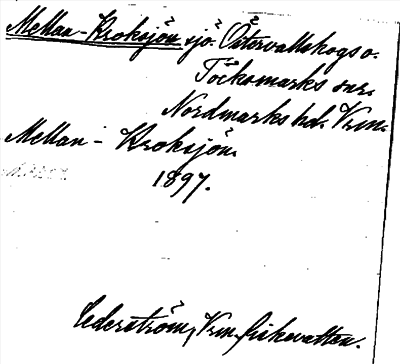 Mellan-Kroksjön sjö. Östervallskogs o.
Töcksmarks snr.
Nordmarks hd. Vrm.
Mellan-Kroksjön.
1897.
Cederström, Vrm. fiskevatten.